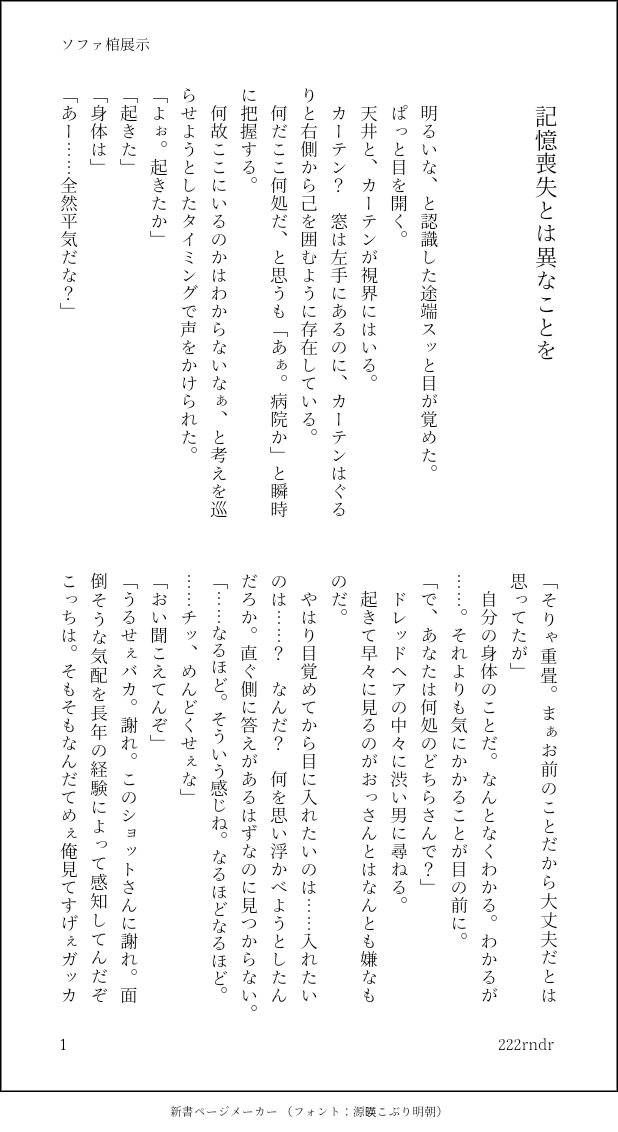 ソファ棺展示
記憶喪失とは異なことを
明るいな、と認識した途端スッと目が覚めた。
ぱっと目を開く。
天井と、カーテンが視界にはいる。
カーテン？　窓は左手にあるのに、カーテンはぐる
りと右側から己を囲むように存在している。
何だここ何処だ、と思うも「あぁ。病院か」と瞬時
に把握する。
何故ここにいるのかはわからないなぁ、と考えを巡
らせようとしたタイミングで声をかけられた。
「よぉ。起きたか」
「起きた」
「身体は」
「あー……全然平気だな？」
「そりゃ重畳。まぁお前のことだから大丈夫だとは
思ってたが」
自分の身体のことだ。なんとなくわかる。わかるが
……。それよりも気にかかることが目の前に。
「で、あなたは何処のどちらさんで？」
ドレッドヘアの中々に渋い男に尋ねる。
起きて早々に見るのがおっさんとはなんとも嫌なも
のだ。
やはり目覚めてから目に入れたいのは……入れたい
のは……？　なんだ？　何を思い浮かべようとしたん
だろか。直ぐ側に答えがあるはずなのに見つからない。
「……なるほど。そういう感じね。なるほどなるほど。
……チッ、めんどくせぇな」
「おい聞こえてんぞ」
「うるせぇバカ。謝れ。このショットさんに謝れ。面
倒そうな気配を長年の経験によって感知してんだぞ
こっちは。そもそもなんだてめぇ俺見てすげぇガッカ
1
222rndr
新書ページメーカー（フォント：源暎こぶり明朝）